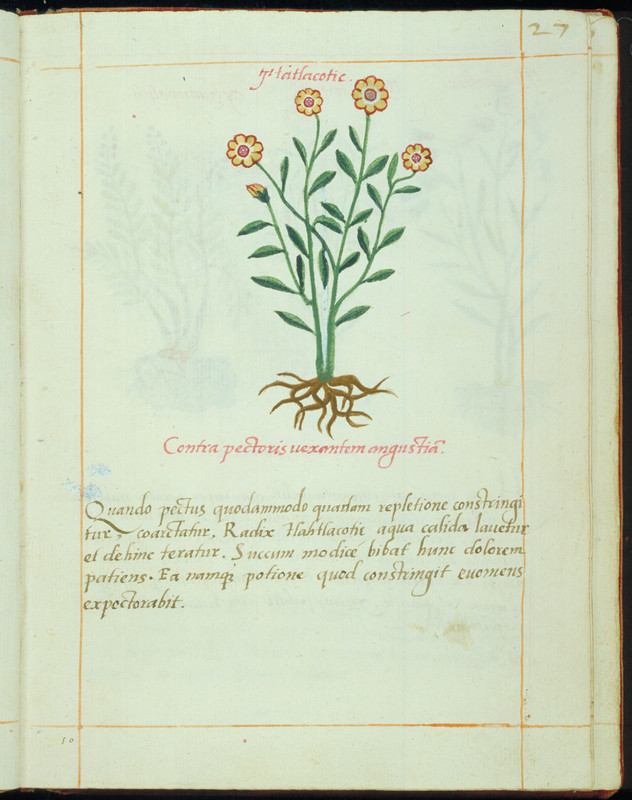 27
Tlatlacotic.
Contra pectoris uexantem angustiã.
Quando pectus quodammodo quadam repletione constringi
tur, coarctatur, Radix Tlahtlacotic aqua calida lauetur
et dehinc teratur. Succum modice bibat hunc dolorem
patiens. Ea namq; potione quod constringit euomens
expectorabit.
50